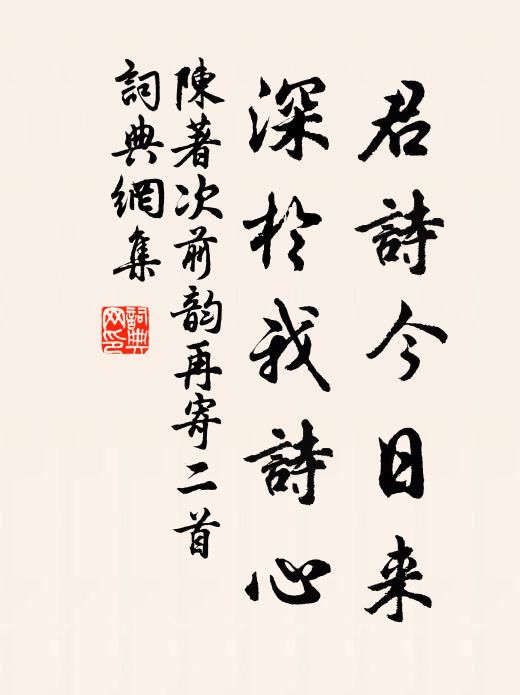 君詩今日来
深於我詩心
陳著次前韵再寄二首
詞典網集
詞典网印